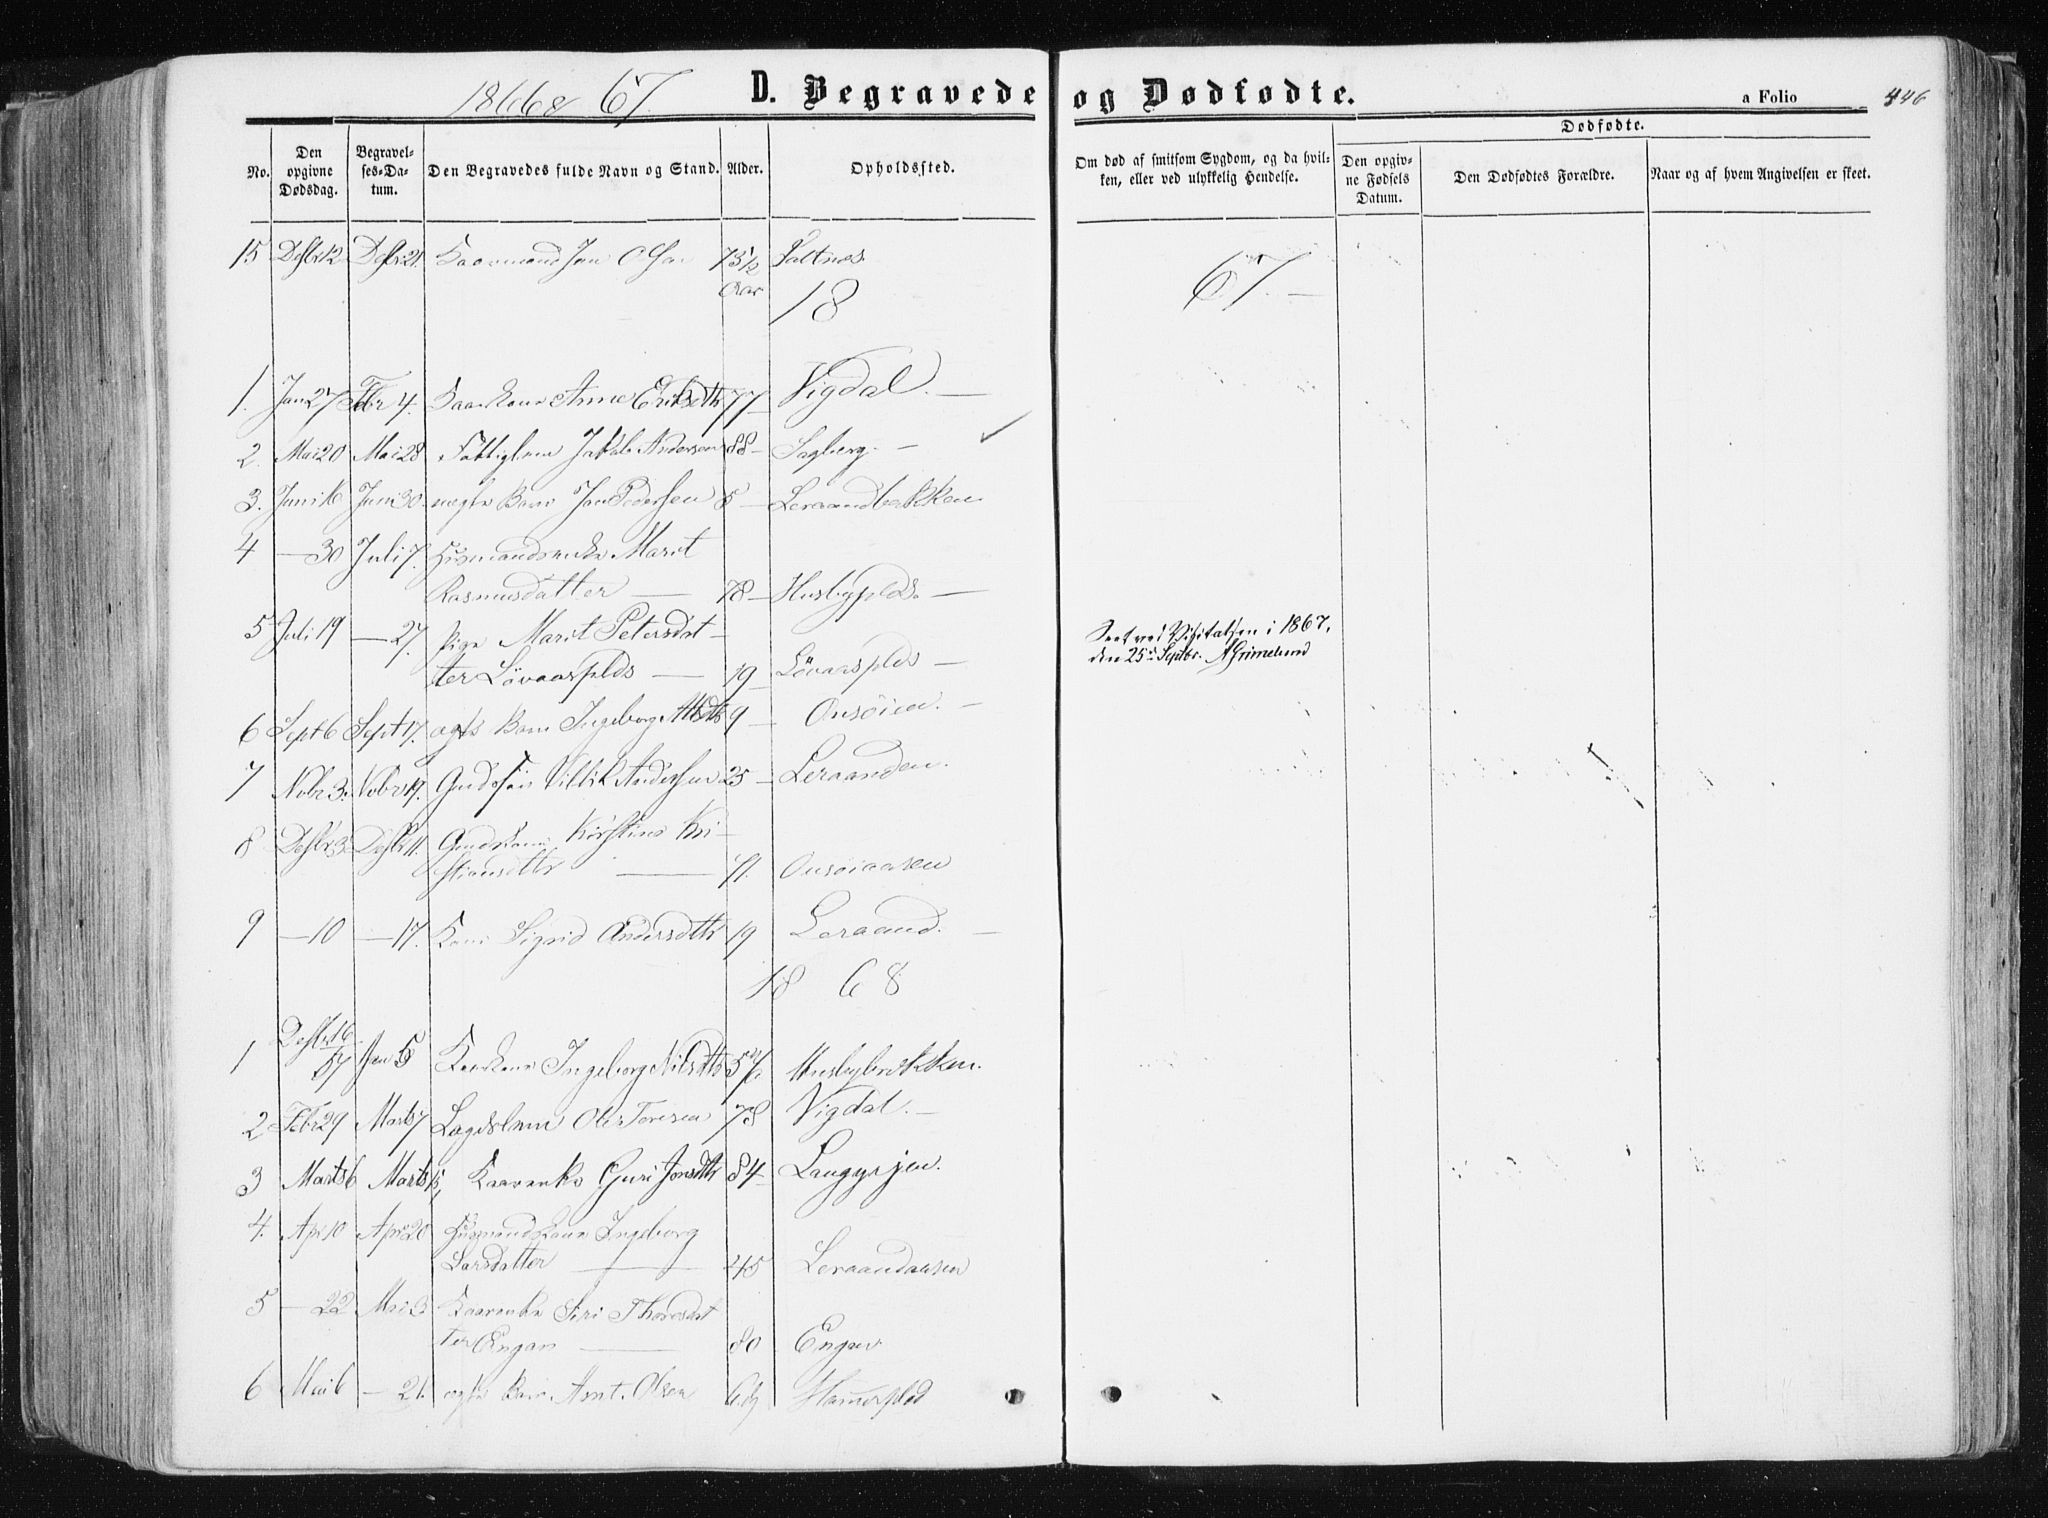 186668 67. D. Begravede og Dødfødte. a Folio 446
Dødfødte.
No. Den opgivne Dødsdag. Begravelses-Datum. Den Begravedes fulde Navn og Stand. Alder. Opholdssted. Om død af smitsom Sygdom, og da hvilken, eller ved ulykkelig Hendelse. Den opgivne Fødsels Datum. Den Dødfødtes Forældre. Naar og af hvem Angivelsen er skeet.
15 Desbr 12 Desbr 21. Kaarmand Jon Olsen 73 1/2 Saltnes
Aar
18 67.
1. Jan 27 Febr 4. Kaarkone Anne Eriksdtr 77 Vigdal. —
2. Mai 20 Mai 28 Fattiglem Jakob Andersen 88 — Sagberg. —
3. Juni 16 Juni 30. uægte Barn Jon Pedersen 5 — Leraandbakken
4 — 30 Juli 7. Husmandsenke Marit
Rasmusdatter — 78 — Husbyplds. —
5 Juli 19 — 27. Pige Marit Petersdat—
ter Løvaasplds — 19 Løvaasplds —
Seet ved Visitatsen i 1867,
den 25de Septbr. A Grimelund
6 Sept 6 Sept 17. ægte Barn Ingeborg 9 — Onsøien. —
7 Nobr 3. Nobr 19. Andersen 25 — Leraanden.
8 Desbr 3. Desbr 11. Gaardkone Kirstine Kri—
stiansdtr — 71. Onsøiaasen
9 — 10 — 17. Kone Sigrid Andersdtr 19 Leraand. —
18 68
1 Desbr 16 67 Jan 5 Kaarkone Ingeborg Nilsdtr Husbybakken.
2 Febr 29 Marts 7 Lægdslem Ole Toresen 78 Vigdal. —
3 Marts 6 Marts 15, Kaarenke Guri Jonsdtr 84 — Langgrjen.
4. Apr 10 Apr 20 Husmandskone Ingeborg
Larsdatter — 45 Leraandaasen
5 — 22 Mai 3 Kaarenke Siri Thoresdat
ter Engan — 80 Engan
6 Mai 6 — 21. ægte Barn Arnt Olsen Hammerplds